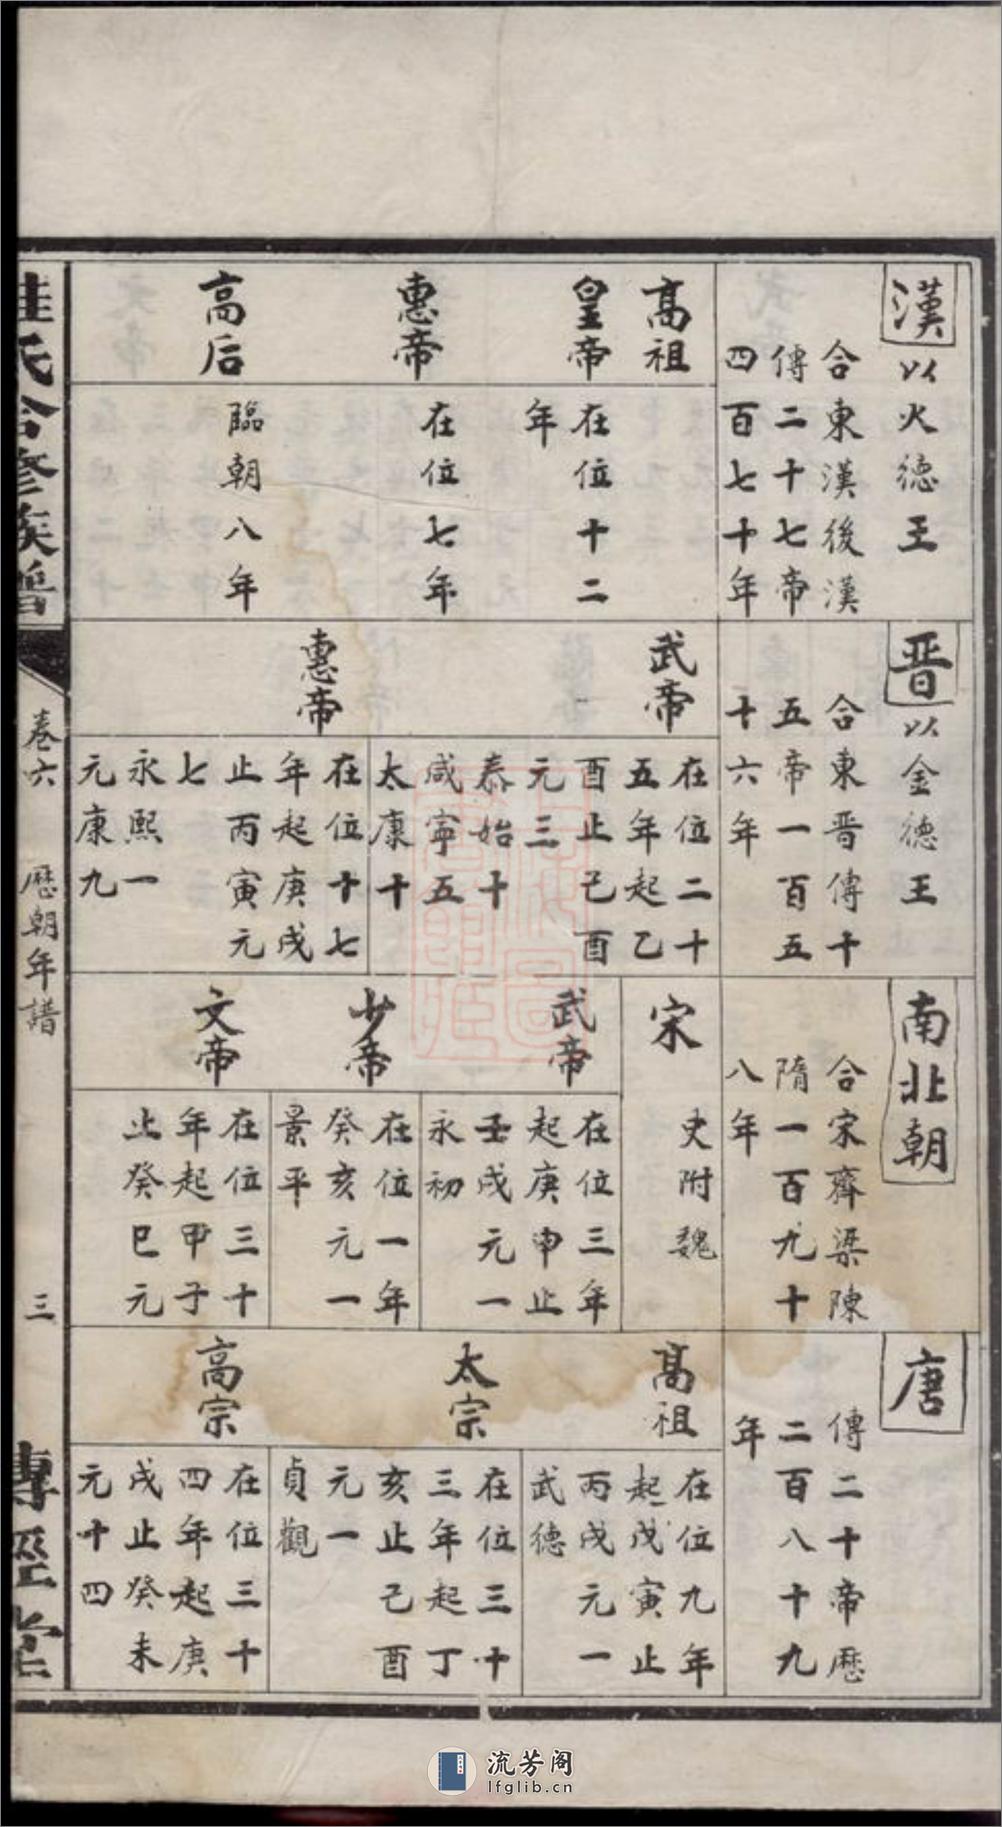 漢以火德王
合東漢後漢
傳二十七帝
四百七十年
高祖
皇帝
在位十二
年
惠帝
在位七年
高后
臨朝八年
晋以金德王
合東晋傳十
五帝一百五
十六年
武帝
在位二十
五年起乙
酉止己酉
元三
泰始十
咸寧五
太康十
惠帝
在位十七
年起庚戌
止丙寅元
七
永熙一
元康九
南北朝
合宋齊梁陳
隋一百九十
八年
宋
史附魏
武帝
在位三年
起庚申止
壬戌元一
永初
少帝
在位一年
癸亥元一
景平
文帝
在位三十
年起甲子
止癸巳元
唐
傳二十帝歷
二百八十九
年
高祖
在位九年
起戊寅止
丙戌元一
武德
太宗
在位三十
三年起丁
亥止己酉
元一
貞觀
高宗
在位三十
四年起庚
戌止癸未
元十四
氏合修族譜
卷六
歷朝年譜
三
傳經堂
流芳阁
lfglib.cn